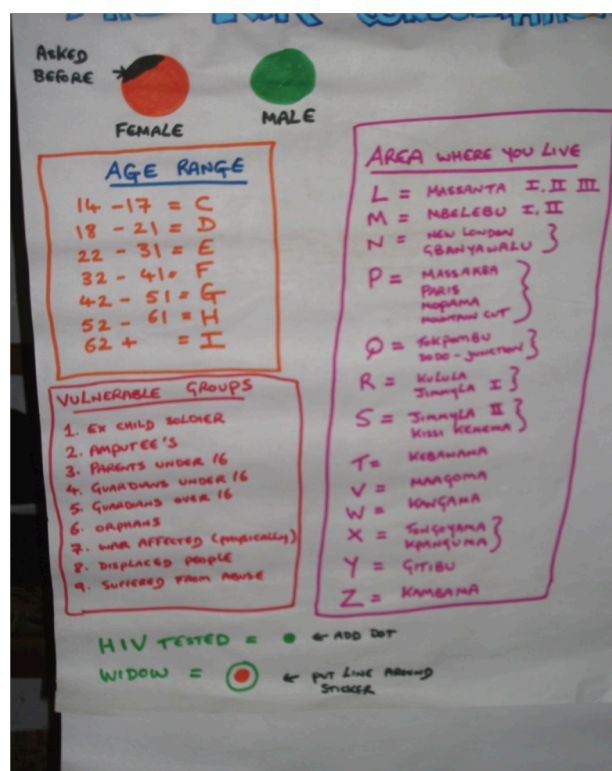 ASKED
BEFORE
FEMALE
MALE
AGE RANGE
14 - 17 = C
18 - 21 = D
22 - 31 = E
32 - 41 = F
42 - 51 = G
52 - 61 = H
62 + = I
VULNERABLE GROUPS
1. EX CHILD SOLDIER
2. AMPUTEE'S
3. PARENTS UNDER 16
4. GUARDIANS UNDER 16
5. GUARDIANS OVER 16
6. ORPHANS
7. WAR AFFECTED (PHYSICALLY)
8. DISPLACED PEOPLE
9. SUFFERED FROM ABUSE
AREA WHERE YOU LIVE
L = MASSANTA I, II III
M = MBELEBU I, II
N = NEW LONDON
GBANYAWALU
P = MASSAKBA
PARIS
MOPAMA
MOUNTAIN CUT
Q = TOKPOMBU
SODO - JUNCTION
R = KULULA
JIMMYLA I
S = JIMMYLA II
KISSI KENEMA
T = KEBAWANA
V = MAAGOMA
W = KAWGAMA
X = TONGOYAMA
KPANGUMA
Y = GITIBU
Z = KAMBAMA
HIV TESTED = ● ← ADD DOT
WIDOW = ← PUT LINE AROUND
STICKER